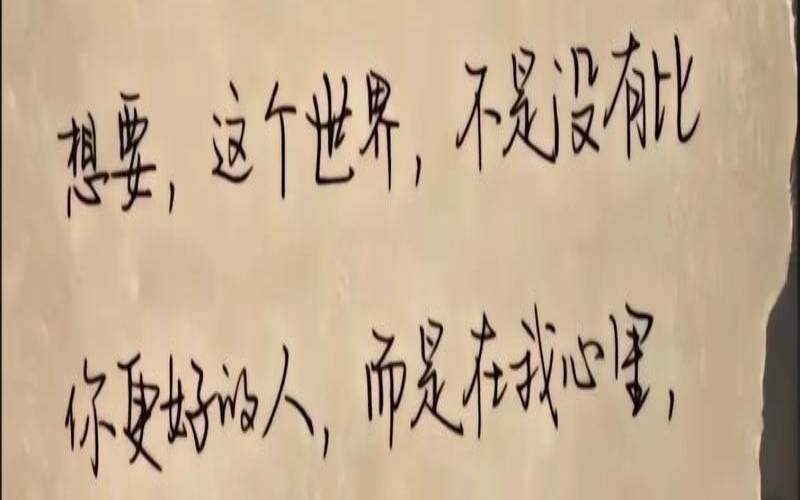 想要,这个世界,不是没有比
你更好的人,而是在我心里,